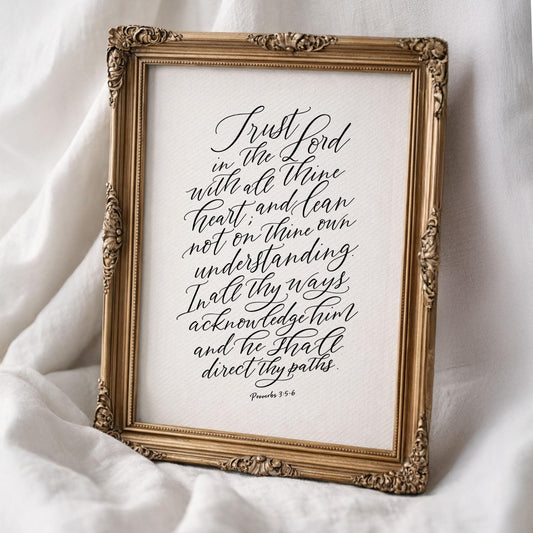 Trust
in the Lord
with all thine
heart; and lean
not on thine own
understanding.
In all thy ways
acknowledge him
and he shall
direct thy paths.
Proverbs 3:5-6